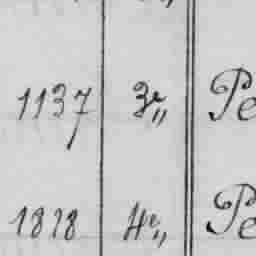 1137 3e„ Pe
1818 4e„ Pe